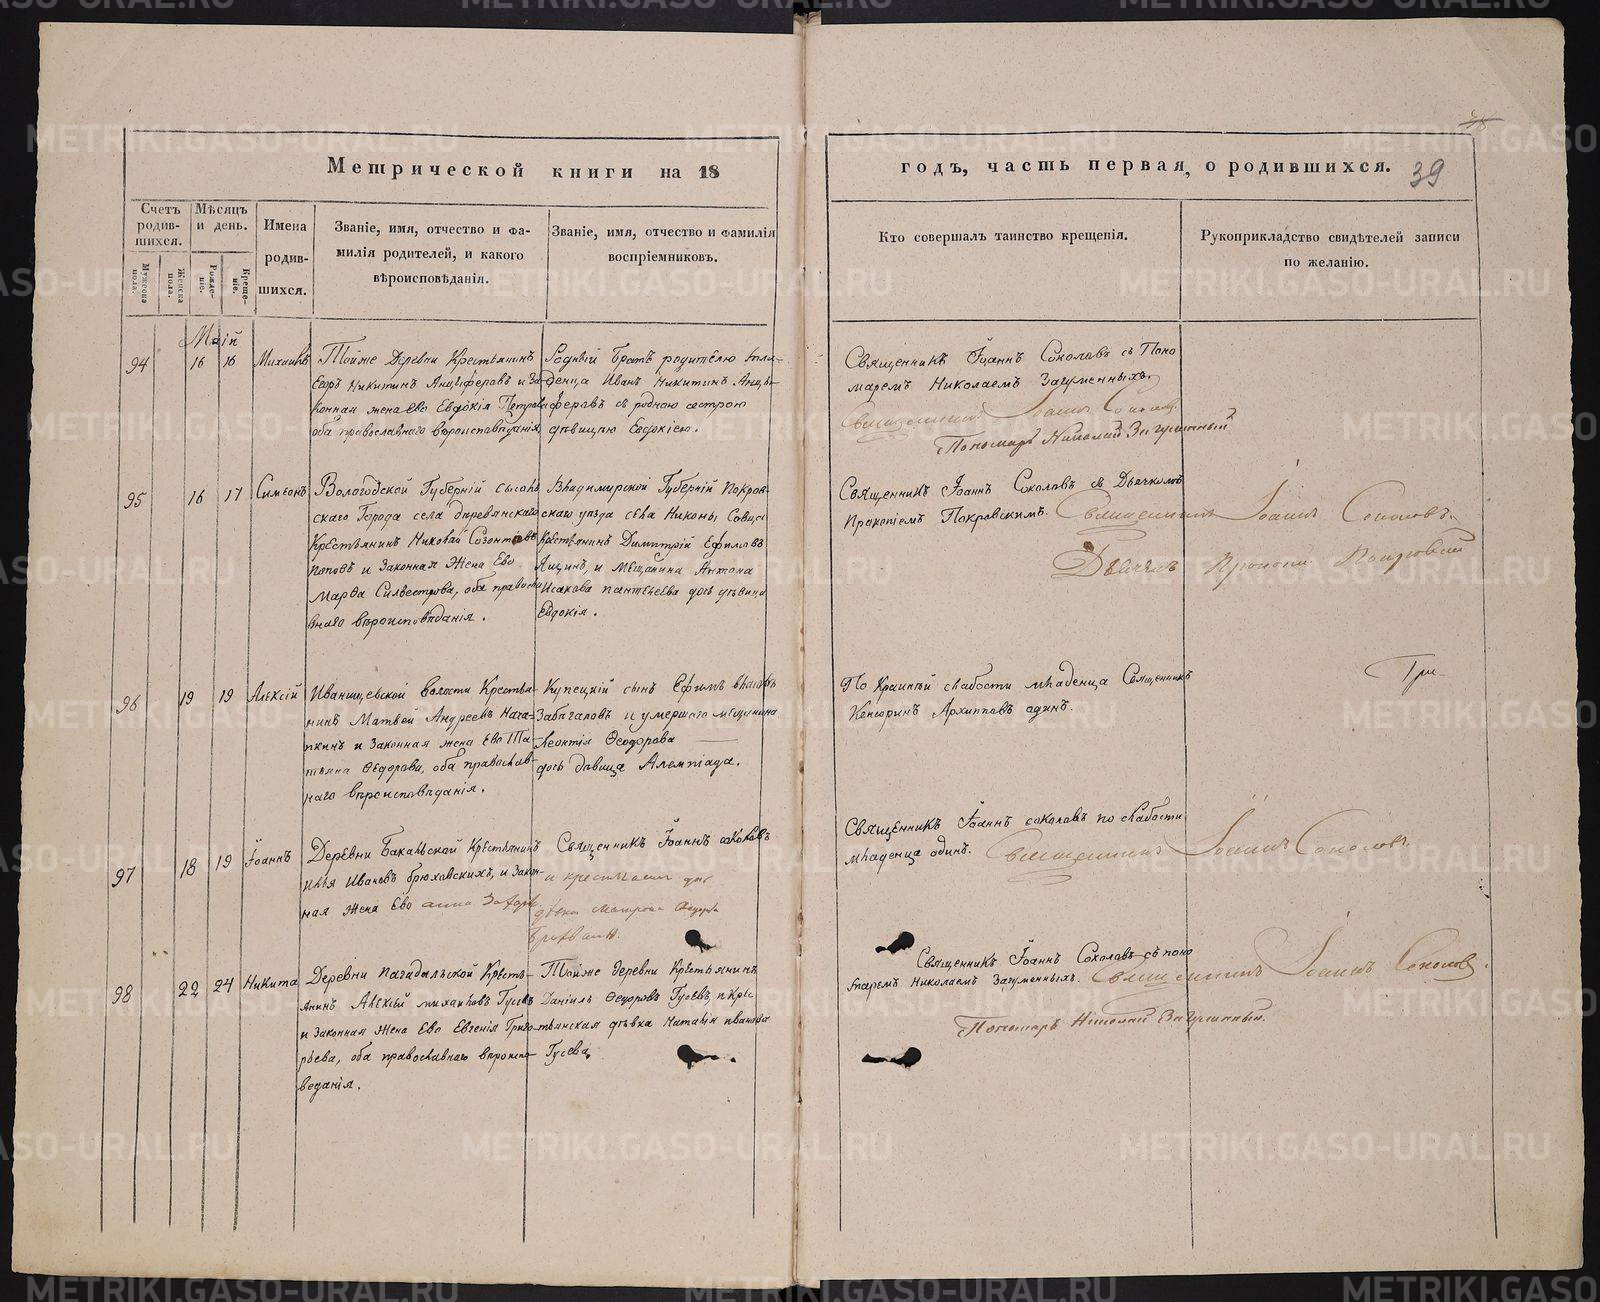 Метрической книги на 18
годъ, часть первая, о родившихся.
39
Счетъ родив-шихся.
Мужеска пола.
Женска пола.
Мѣсяцъ и день.
Рожде-ніе.
Креще-ніе.
Имена родив-шихся.
Званіе, имя, отчество и фа-
милія родителей, и какого
вѣроисповѣданія.
Званіе, имя, отчество и фамилія
воспріемниковъ.
Кто совершалъ таинство крещенія.
Рукоприкладство свидѣтелей записи
по желанію.
Маій
94 16 16 Михаилъ
Тойже Деревни Крестьянинъ
Егоръ Никитинъ Анциферовъ и За-
конная жена Ево Евдокія Петрова
оба православнаго вѣроисповѣданія,
Родный братъ родителю мла-
денца Иванъ Никитинъ Анцы-
феровъ съ родною сестрою
дѣвицею Евдокіею.
Священникъ Іоаннъ Соколовъ съ Поно
маремъ Николаемъ Загуменныхъ.
Священникъ Іоаннъ Соколовъ.
Пономарь Николай Загуменный
95 16 17 Симеонъ
Вологодской Губерній
скаго Города села
Крестьянинъ Николай Созонтовъ
Поповъ и Законная Жена Ево
Марѳа Силвестрова, оба правосла
внаго вѣроисповѣданія.
Владимирской Губерній Покров-
скаго уѣзда села Никоны
Крестьянинъ Димитрій Ефимовъ
и Мещанина Антона
Исакова дочь дѣвица
Евдокія.
Священникъ Іоаннъ Соколовъ съ Дьячкомъ
Прокопіемъ Покровскимъ.
Священникъ Іоаннъ Соколовъ.
Дьячекъ Прокопій Покровскій
96 19 19 Алексій
волости Крестья-
нинъ Матвей Андреевъ
и Законная жена Ево Та-
тьяна Ѳедорова, оба православ-
наго вѣроисповѣданія.
Купецкій сынъ Ефимъ
и умершаго мещанина
Леонтія Ѳеодорова
дочь дѣвица
По Крайнѣй слабости младенца Священникъ
Кенсоринъ Архипповъ одинъ.
97 18 19 Іоаннъ
Деревни Бакальской Крестьянинъ
Илья Ивановъ Брюховскихъ, и Закон-
ная Жена Ево Анна
Священникъ Іоаннъ Соколовъ
и крестьянина дочь
дѣвка Матрона
Священникъ Іоаннъ Соколовъ по слабости
младенца одинъ.
Священникъ Іоаннъ Соколовъ.
98 22 24 Никита
Деревни Кресть-
янинъ Алексѣй Михаиловъ Гусевъ
и Законная Жена Ево Евгенія Григо-
рьева, оба православнаго вѣроиспо-
веданія.
Тойже деревни Крестьянинъ
Даніилъ Ѳеодоровъ Гусевъ, и Крес
тьянская дѣвка Наталія Иванова
Гусева.
Священникъ Іоаннъ Соколовъ съ поно
маремъ Николаемъ Загуменныхъ.
Священникъ Іоаннъ Соколовъ.
Пономарь Николай Загуменный.
METRIKI.GASO-URAL.RU